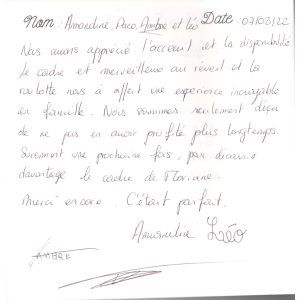 Nom : Amandine, Paco, Ambre et Léo Date : 07/03/22
Nous avons apprécié l'accueil et la disponibilité
le cadre et merveilleux au réveil et la
roulotte nous à offert une expérience incroyable
en famille. Nous sommes seulement déçu
de ne pas en avoir profité plus longtemps.
Surement une prochaine fois, pour découvrir
davantage le cadre de Floriane.
Merci encore. C'était parfait.
Léo
AMBRE